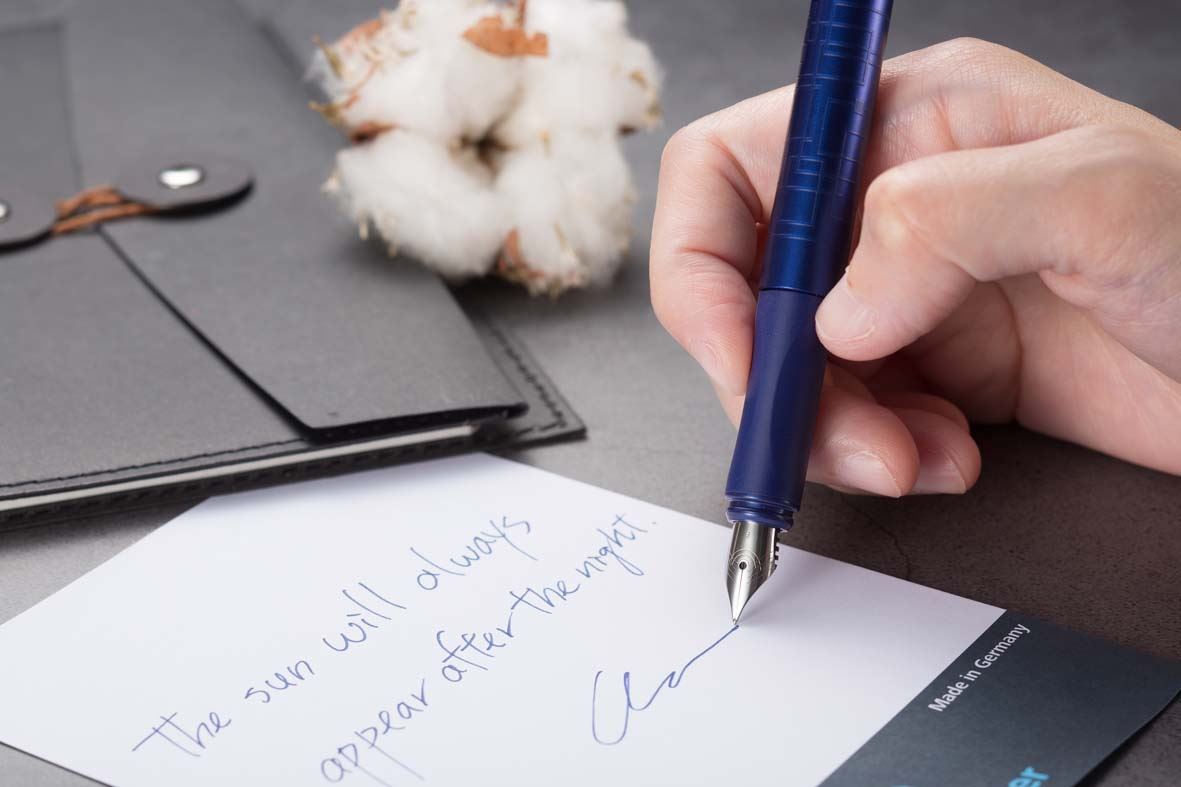 The sun will always
appear after the night.
Made in Germany
er